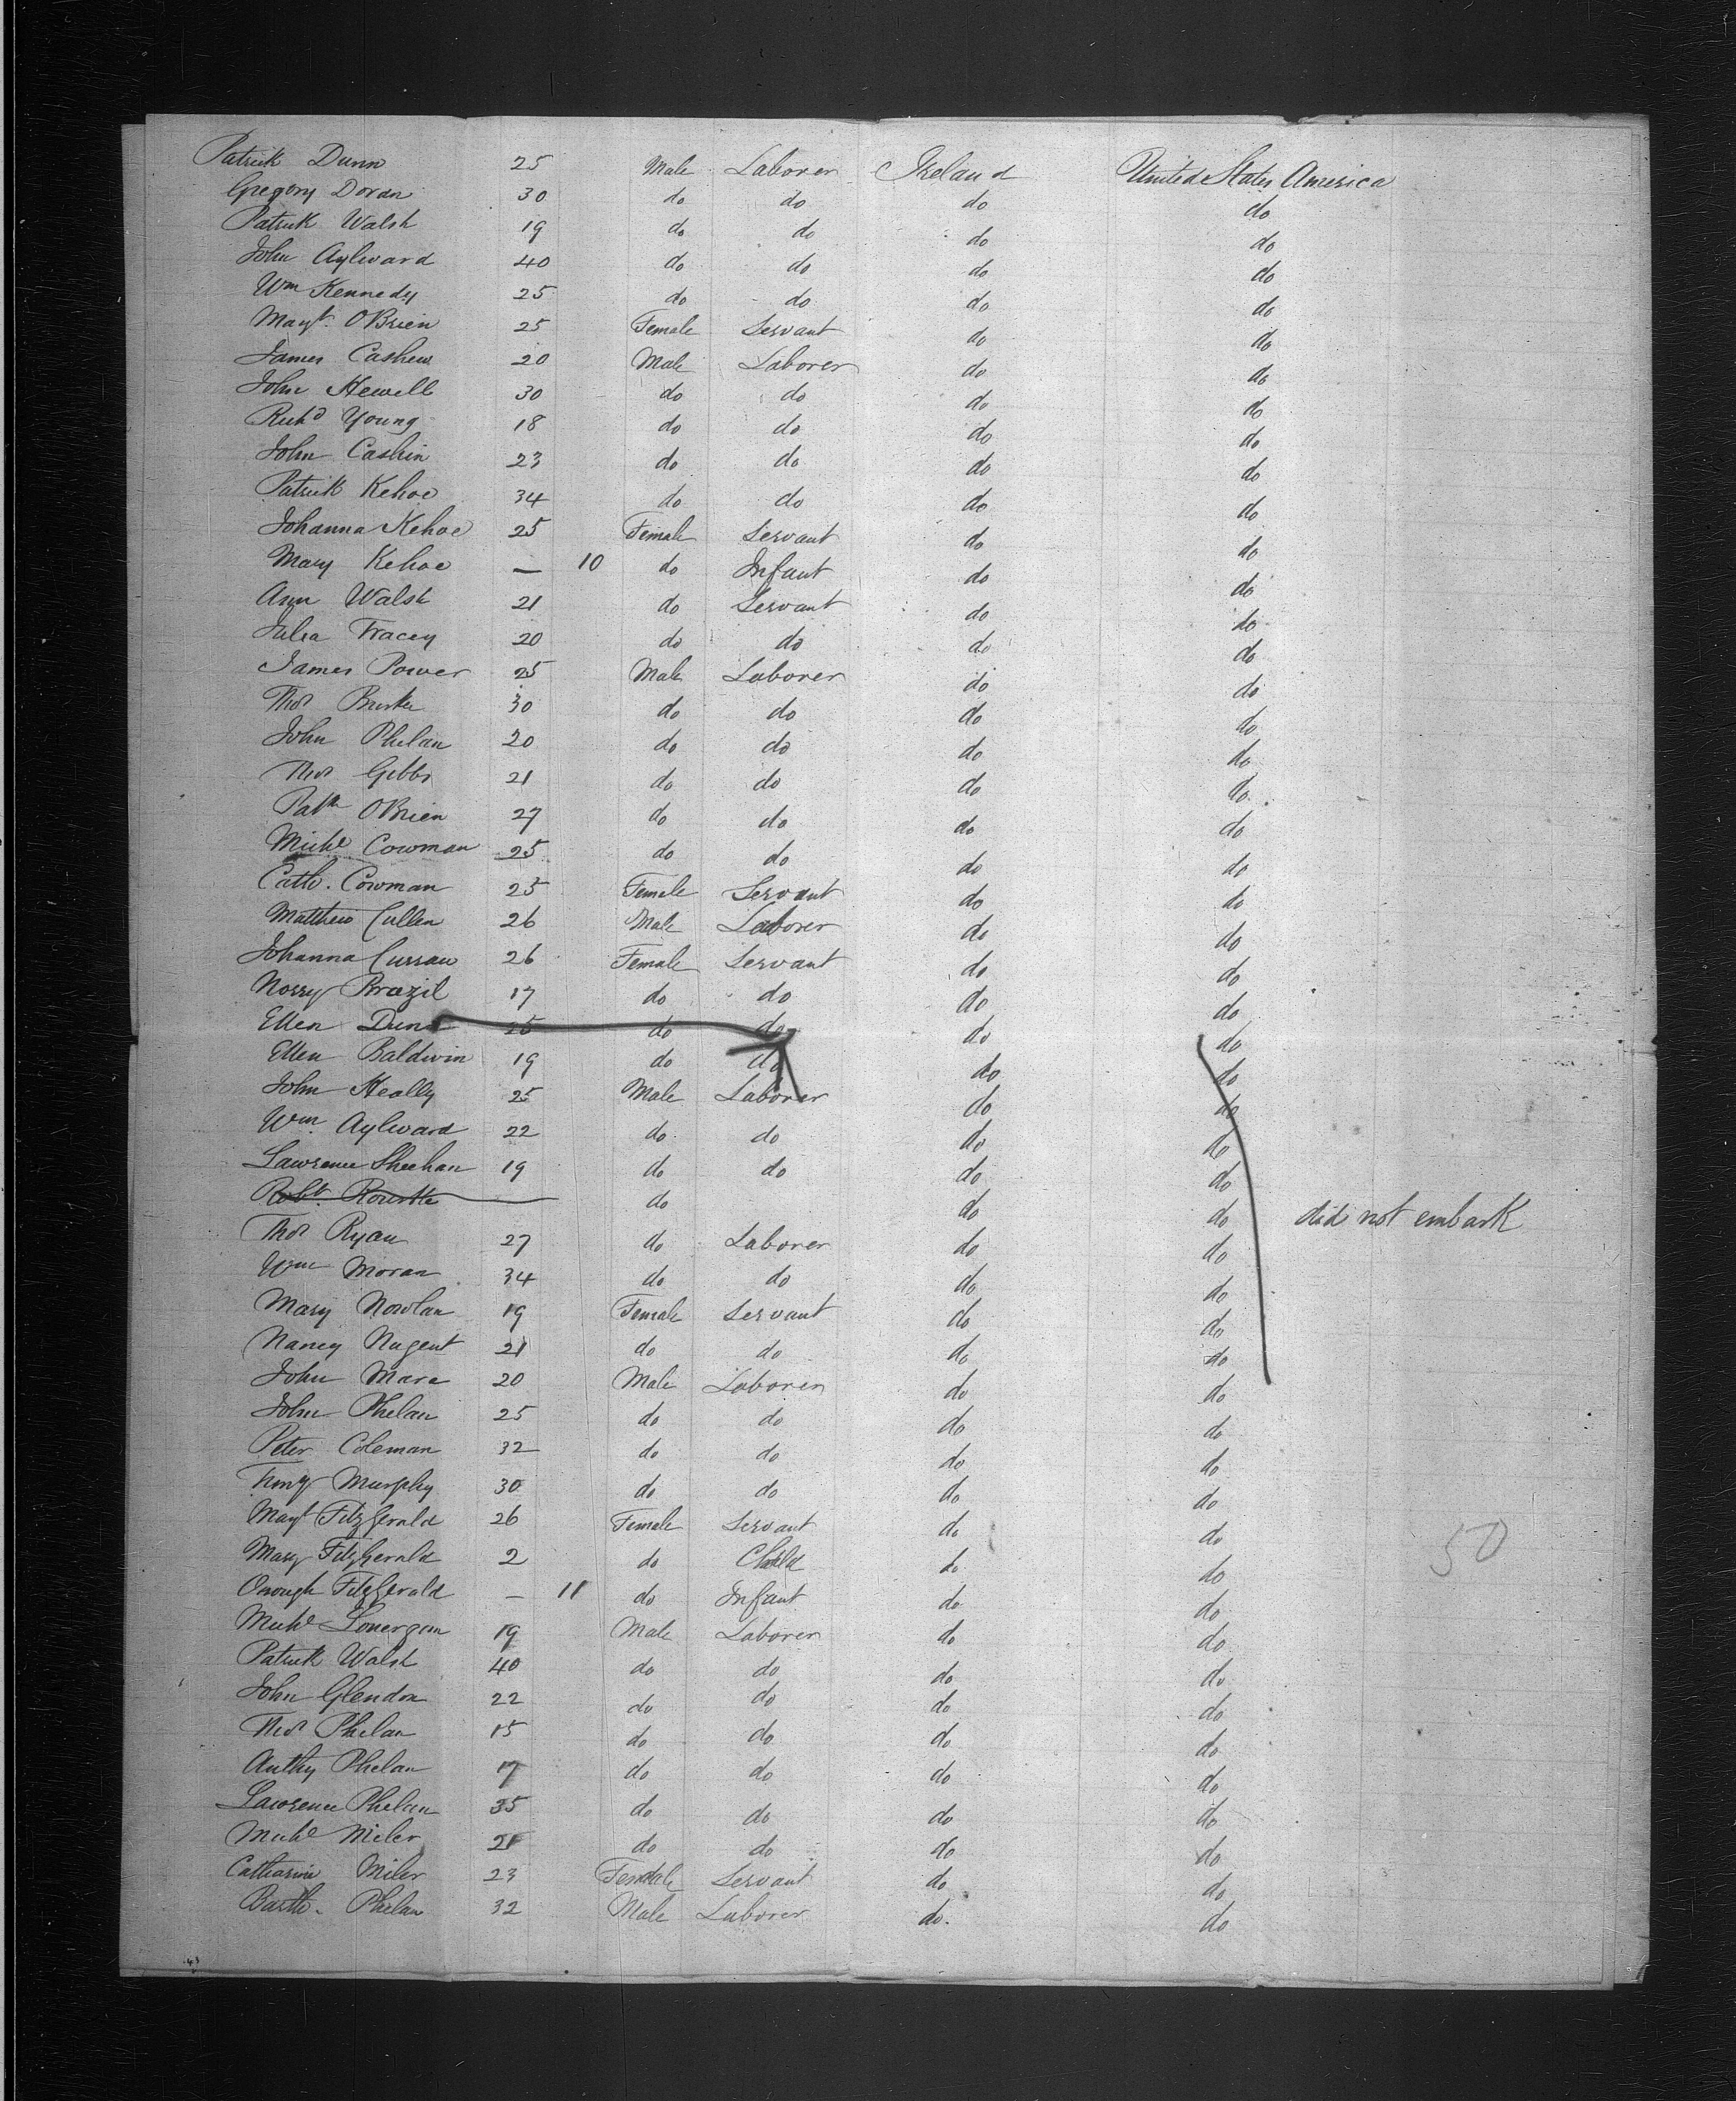 Patrick Dunn 25 Male Laborer Ireland United States America
Gregory Doran 30 do do do do
Patrick Walsh 19 do do do do
John Aylward 40 do do do do
Wm Kennedy 25 do do do do
Mayt. OBrien 25 Female Servant do do
James Cashew 20 Male Laborer do do
John Hewell 30 do do do do
Richd Young 18 do do do do
John Cashin 23 do do do do
Patrick Kehoe 34 do do do do
Johanna Kehoe 25 Female Servant do do
Mary Kehoe — 10 do Infant do do
Ann Walsh 21 do Servant do do
Julia Tracey 20 do do do do
James Power 25 Male Laborer do do
Thos Burke 30 do do do do
John Phelan 20 do do do do
Thos Gibbs 21 do do do do
Patk OBrien 27 do do do do
Michl Cowman 25 do do do do
Cath. Cowman 25 Female Servant do do
Matthew Cullen 26 Male Laborer do do
Johanna Curran 26 Female Servant do do
Norry Brazil 17 do do do do
Ellen Dunn 25 do do do do
Ellen Baldwin 19 do do do do
John Heally 25 Male Laborer do do
Wm. Aylward 22 do do do do
Lawrence Sheehan 19 do do do do
Robt. Rourke do do do did not embark
Thos Ryan 27 do Laborer do do
Wm Moran 34 do do do do
Mary Nowlan 19 Female Servant do do
Nancy Nugent 21 do do do do
John Mara 20 Male Laborer do do
John Phelan 25 do do do do
Peter Coleman 32 do do do do
Timy Murphy 30 do do do do
Mayt FitzGerald 26 Female Servant do do
Mary FitzGerald 2 do Child do do
50
FitzGerald — 11 do Infant do do
Michl Lonergan 19 Male Laborer do do
Patrick Walsh 40 do do do do
John Glendon 22 do do do do
Thos Phelan 15 do do do do
Anthy Phelan 17 do do do do
Lawrence Phelan 35 do do do do
Michl Miler 21 do do do do
Catharine Miler 23 Female Servant do do
Barth. Phelan 32 Male Laborer do. do